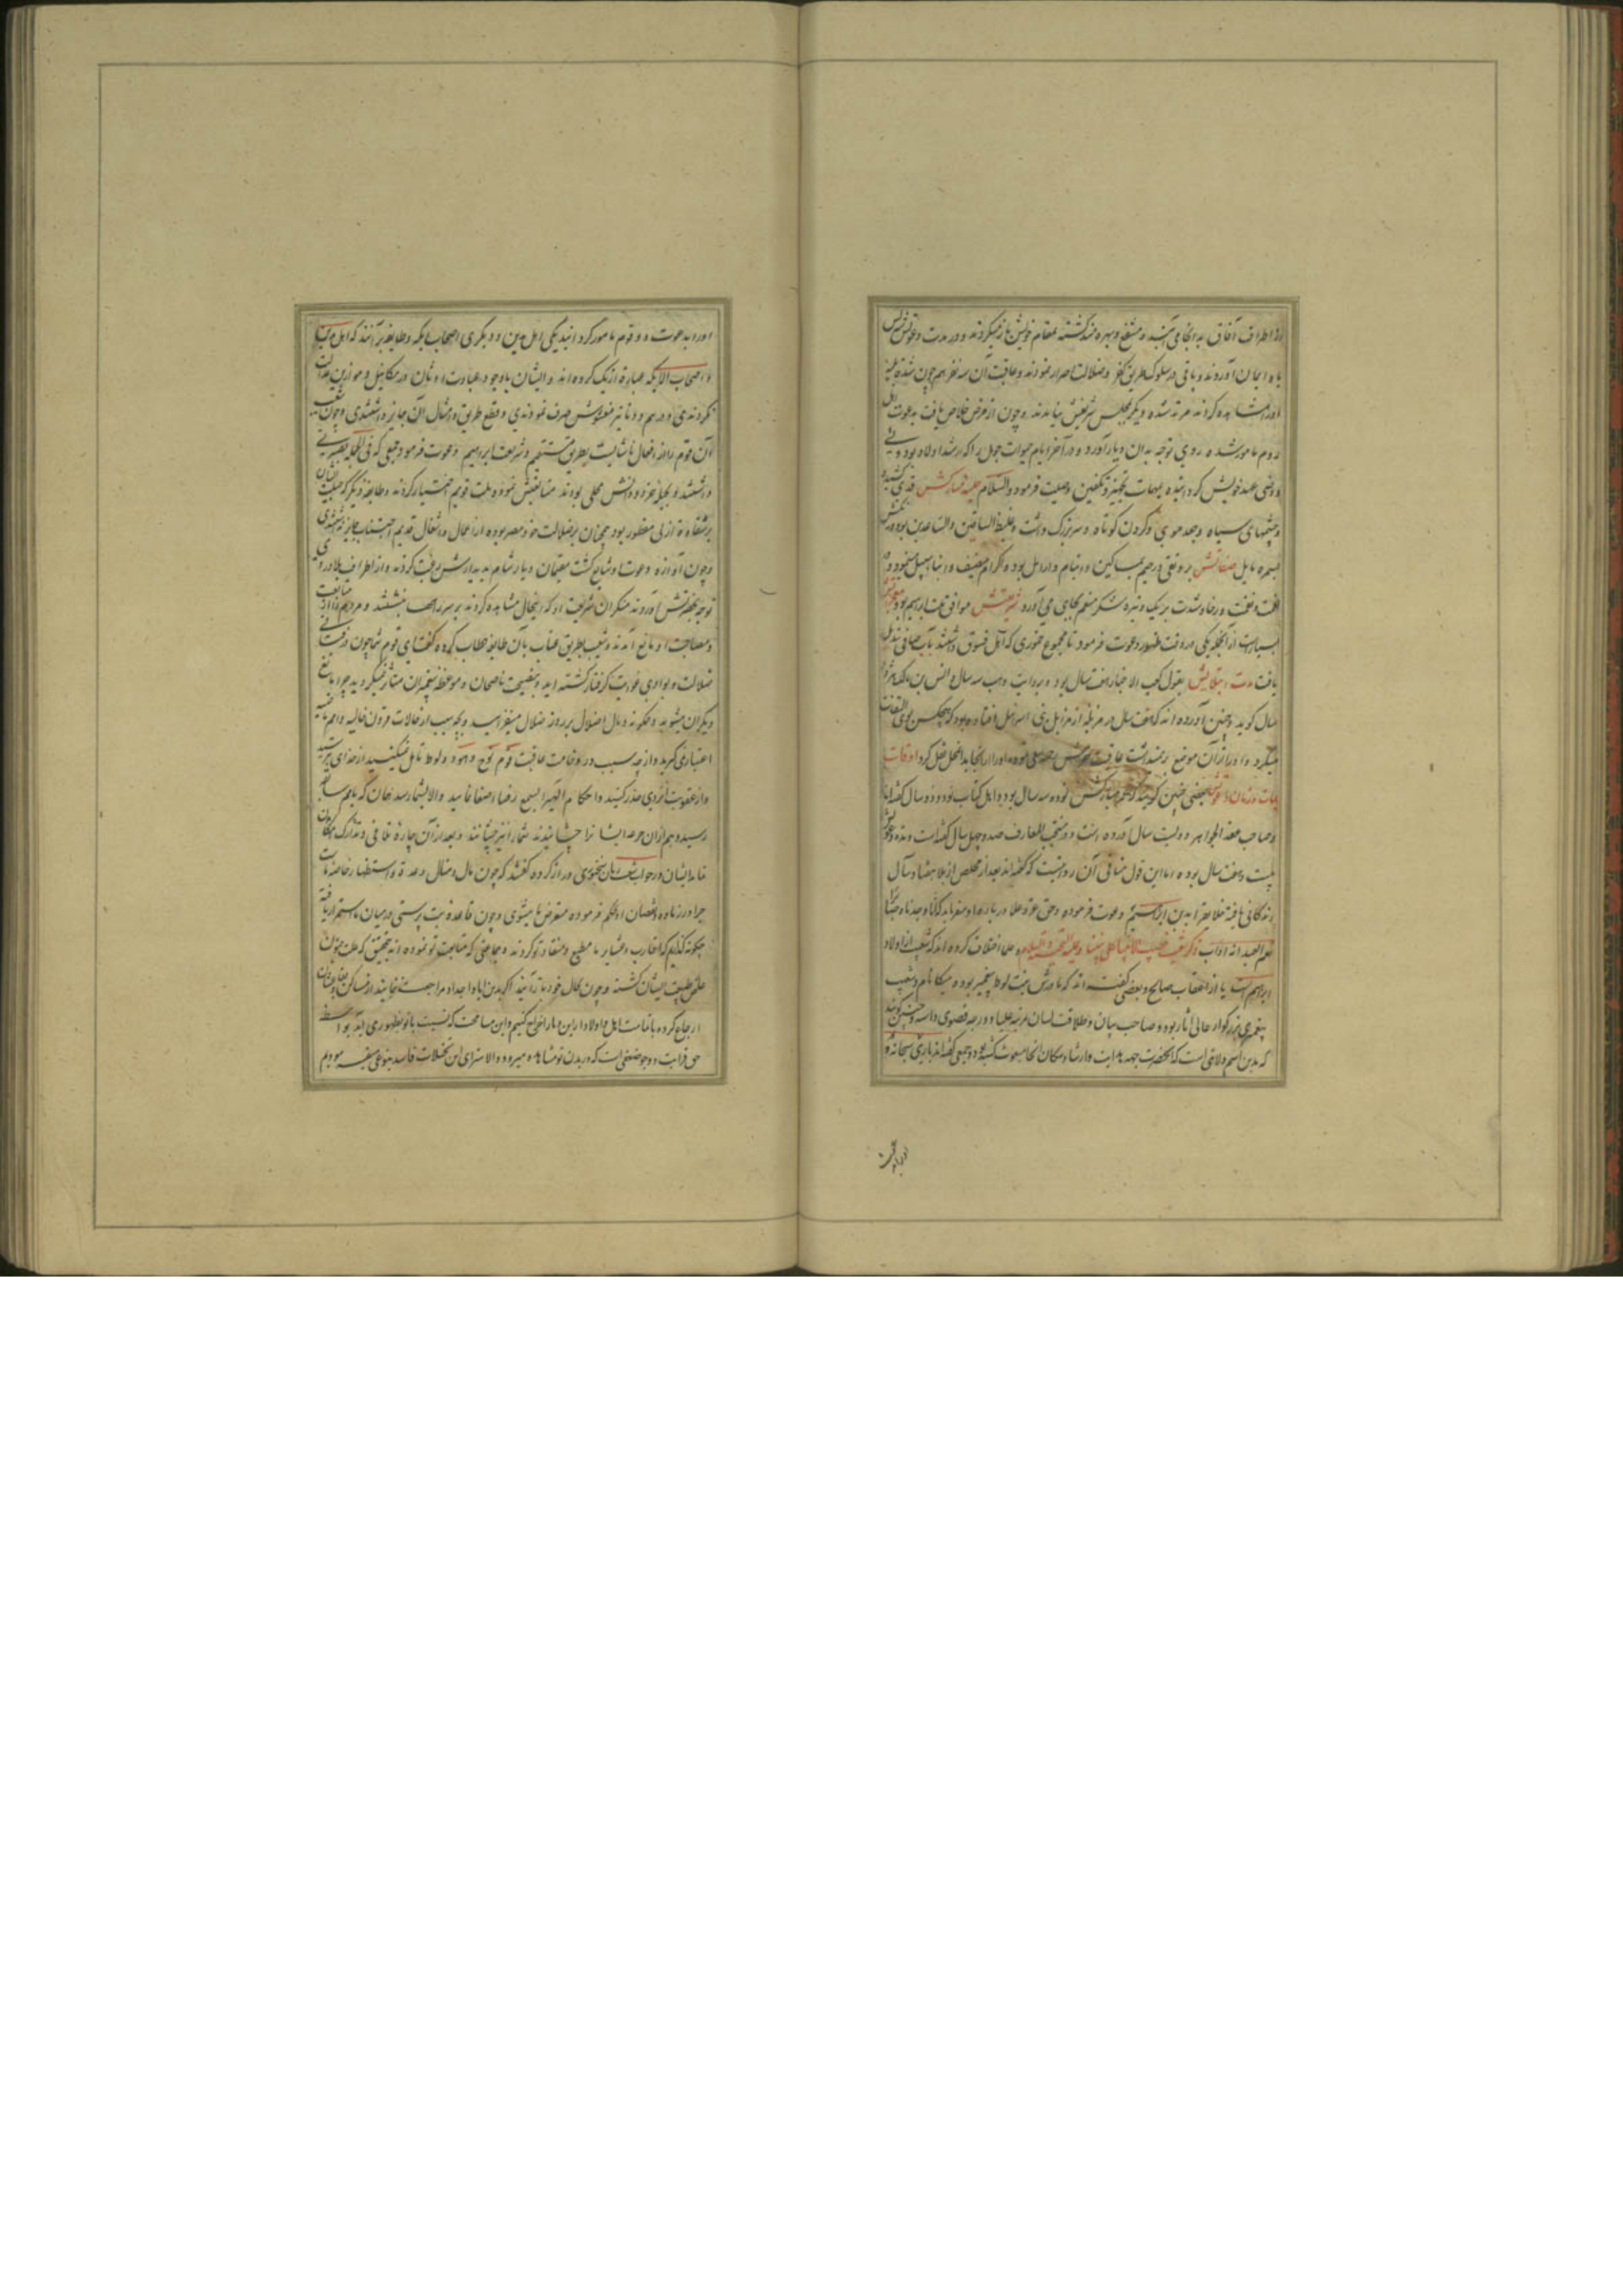 از اطراف آفاق به آنجا می آمدند و منتفع و بهره مند گشته بمقام خویش باز میگردند و در مدت دعوتش کس
باو ایمان آوردند و باقی در سلوک طریق کفر و ضلالت اصرار نمودند و عاقبت آن سه نفر هم چون شدت بلیه
او را مشاهده کردند مرتد شده دیگر بمجلس شریفش نیامدند و چون از مرض خلاص یافت بدعوت اهل
روم مامور شده روی توجه بدان دیار آورد و در آخر ایام حیوات حومل را که ارشد اولاد بود ولی
و وصی عهد خویش گردانیده بمهمات تجهیز و تکفین وصیت فرمود والسلام حلیه مبارکش قدی کشیده
و چشمهای سیاه و جعد موی و گردن کوتاه و سر بزرگ داشت و غلیظ الساقین و الساعدین بود و رنکش
بسمره مایل صفاتش بر و تقی و رحیم بمساکین و ایتام و ارامل بوده و اکرام ضیف و ابناء سبیل مینمود و در
نعمت و رخا و شدت بر یک وتیره شکر منعم بجای می آورد شریعتش موافق ملت ابراهیم بود معجزاتش
بسیارست از آنجمله یکی در وقت ظهور دعوت فرمود تا مجموع خموری که اهل فسوق داشتند بآب صافی تبدیل
یافت مدت ابتلایش بقول کعب الاحبار هفت سال بود و بروایت وهب سه سال و انس بن مالک هژده
سال گوید و چنین آورده اند که هفت سال در مزبله از مزابل بنی اسرائیل افتاده بود که هیچکس بوی التفات
میکرد و او را از آن موضع بر نمیداشت عاقبت حرمش او را از آنجا بدانمحل نقل کرد اوقات
حیات و زمان دعوتش بعضی چنین گویند که عمر مبارکش نود و سه سال بود و اهل کتاب نود و دو سال گفته اند
و صاحب عقد الجواهر دویست سال آورده است و در منتخب المعارف صد و چهل سال گفته است و مدت دعوتش
بیست و هفت سال بوده اما این قول منافی آن روایتست که گفته اند بعد از مخلص از بلا هفتاد سال
زندگانی یافته خلایق را بدین ابراهیم دعوت فرموده و حق عز و علا در باره او میفرماید که انا وجدناه صابرا
نعم العبد انه اواب ذکر شعیب خطیب الانبیا علی نبینا و علیه التحیه و السلام علما اختلاف کرده اند که شعیب از اولاد
ابراهیم است یا از اعقاب صالح و بعضی گفته اند که مادرش بنت لوط پیغمبر بوده میکا نام و شعیب
پیغمبری بزرگوار عالی آثار بود و صاحب بیان و طلاقت لسان مرتبه علیا و درجه قصوی داشته و چنین گویند
که مدین اسم ولایتی است که آنحضرت جهة هدایت و ارشاد سکان آنجا مبعوث گشته بود و جمعی گفته اند باری سبحانه و
او را بدعوت
او را بدعوت دو قوم مامور گردانید یکی اهل مدین و دیگری اصحاب ایکه و طایفه بر آنند که اهل مدین
و اصحاب الایکه عبارة از یک گروه اند و ایشان باوجود عبادت اوثان در مکائیل و موازین عدالت
نکردندی و دراهم و دنانیر مغشوش صرف نمودندی و قطع طریق و امثال آن جایز داشتندی و چون شعیب
آن قوم را از افعال ناشایست بطریق مستقیم و شریعت ابراهیم دعوت فرمود جمعی که فی الجمله بصیرتی
داشتند و بحلیه خرد و دانش محلی بودند متابعتش نموده ملت قویم اختیار کردند و طایفه دیگر که جبلت ایشان
بر شقاوة ازلی مفطور بود همچنان بر ضلالت خود مصر بوده از اعمال و اشغال قدیم اجتناب جایز نداشتندی
و چون آوازه دعوت او شایع گشت مقیمان دیار شام بدیدارش رغبت کردند و از اطراف بلاد روی
توجه بحضرتش آوردند منکران شریعت او که اینحال مشاهده کردند بر سر راهها نشستند و مردم را از متابعت
و مصاحبت او مانع آمدند و شعیب بطریق عتاب بآن طایفه خطاب کرده گفت ای قوم شما چون در تیه
ضلالت و بوادی غوایت گرفتار گشته اید و بنصیحت ناصحان و موعظه پیغمبران متاثر نمیگردید چرا مانع
دیگران میشوید و چگونه وبال اضلال بر روز ضلال میفزایید و بچه سبب از حالات قرون خالیه و امم ماضیه
اعتبار نمی گیرید و از چه سبب در وخامت عاقبت قوم نوح و هود و لوط تامل نمیکنید از خدای بترسید
و از عقوبت ایزدی حذر کنید و احکام الهی را بسمع رضا اصغا نمایید و الا بشما رسد همان که بامم سابقه
رسید و هم از ان جرعه ایشانرا چشانیدند شما را نیز چشانند و بعد از آن چارة تلافی و تدارک ممکن
نماند ایشان در جواب شعیب زبان سخنوری دراز کرده گفتند که چون مال و منال و عدة و استظهار خاصه ماست
چرا در زیاده و نقصان آن حکم فرموده متعرض ما میشوی و چون قاعده بت پرستی در میان ما استمرار یافته
چگونه گذاریم که اقارب و عشایر ما مطیع و منقاد تو گردند و جماعتی که متابعت تو نموده اند بتحقیق که علت جنون
طبیعت ایشان گشته و چون بحال خود باز آیند اگر بدین ابا و اجداد مراجعت ننمایند از مساکن و اوطان
ازعاج کرده باقامت اهل و اولاد از این دیار اخراج کنیم و این مسامحت که نسبت با تو بظهور می آید بواسطه
حق قرابت و وجود ضعفی است که در بدن تو مشاهده میرود و الا سزای این تخیلات فاسد بنوعی میفرمودیم